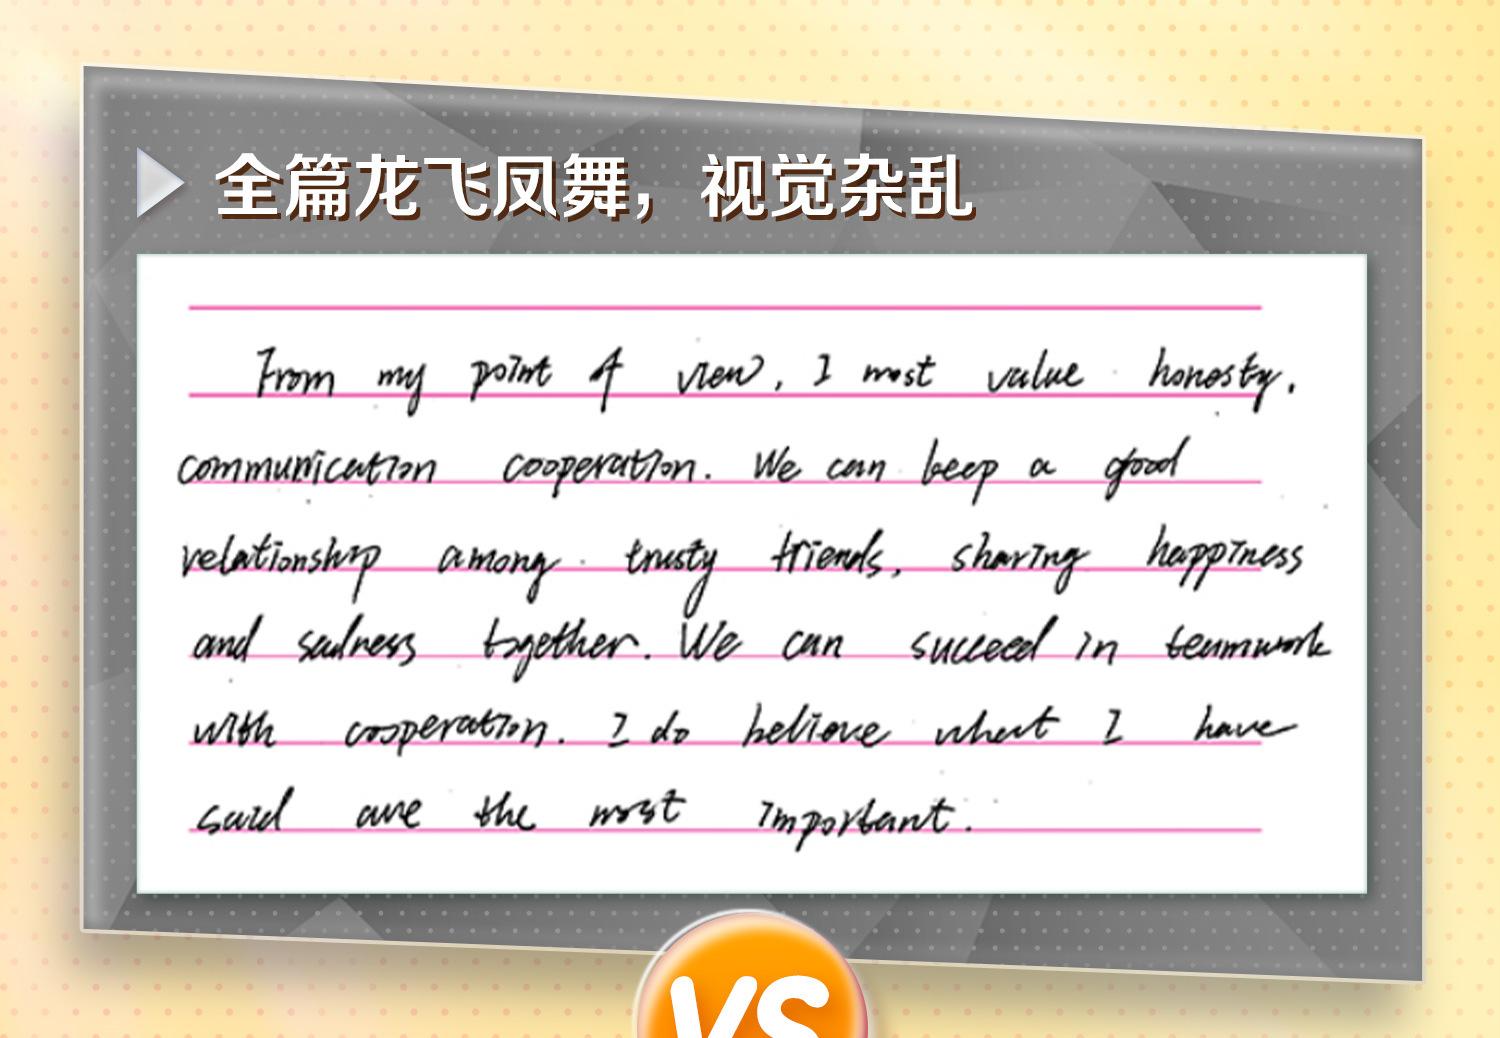 全篇龙飞凤舞，视觉杂乱
From my point of view, I most value honesty.
communication cooperation. We can keep a good
relationship among trusty friends, sharing happiness
and sadness together. We can succeed in teamwork
with cooperation. I do believe what I have
said are the most important.
VS